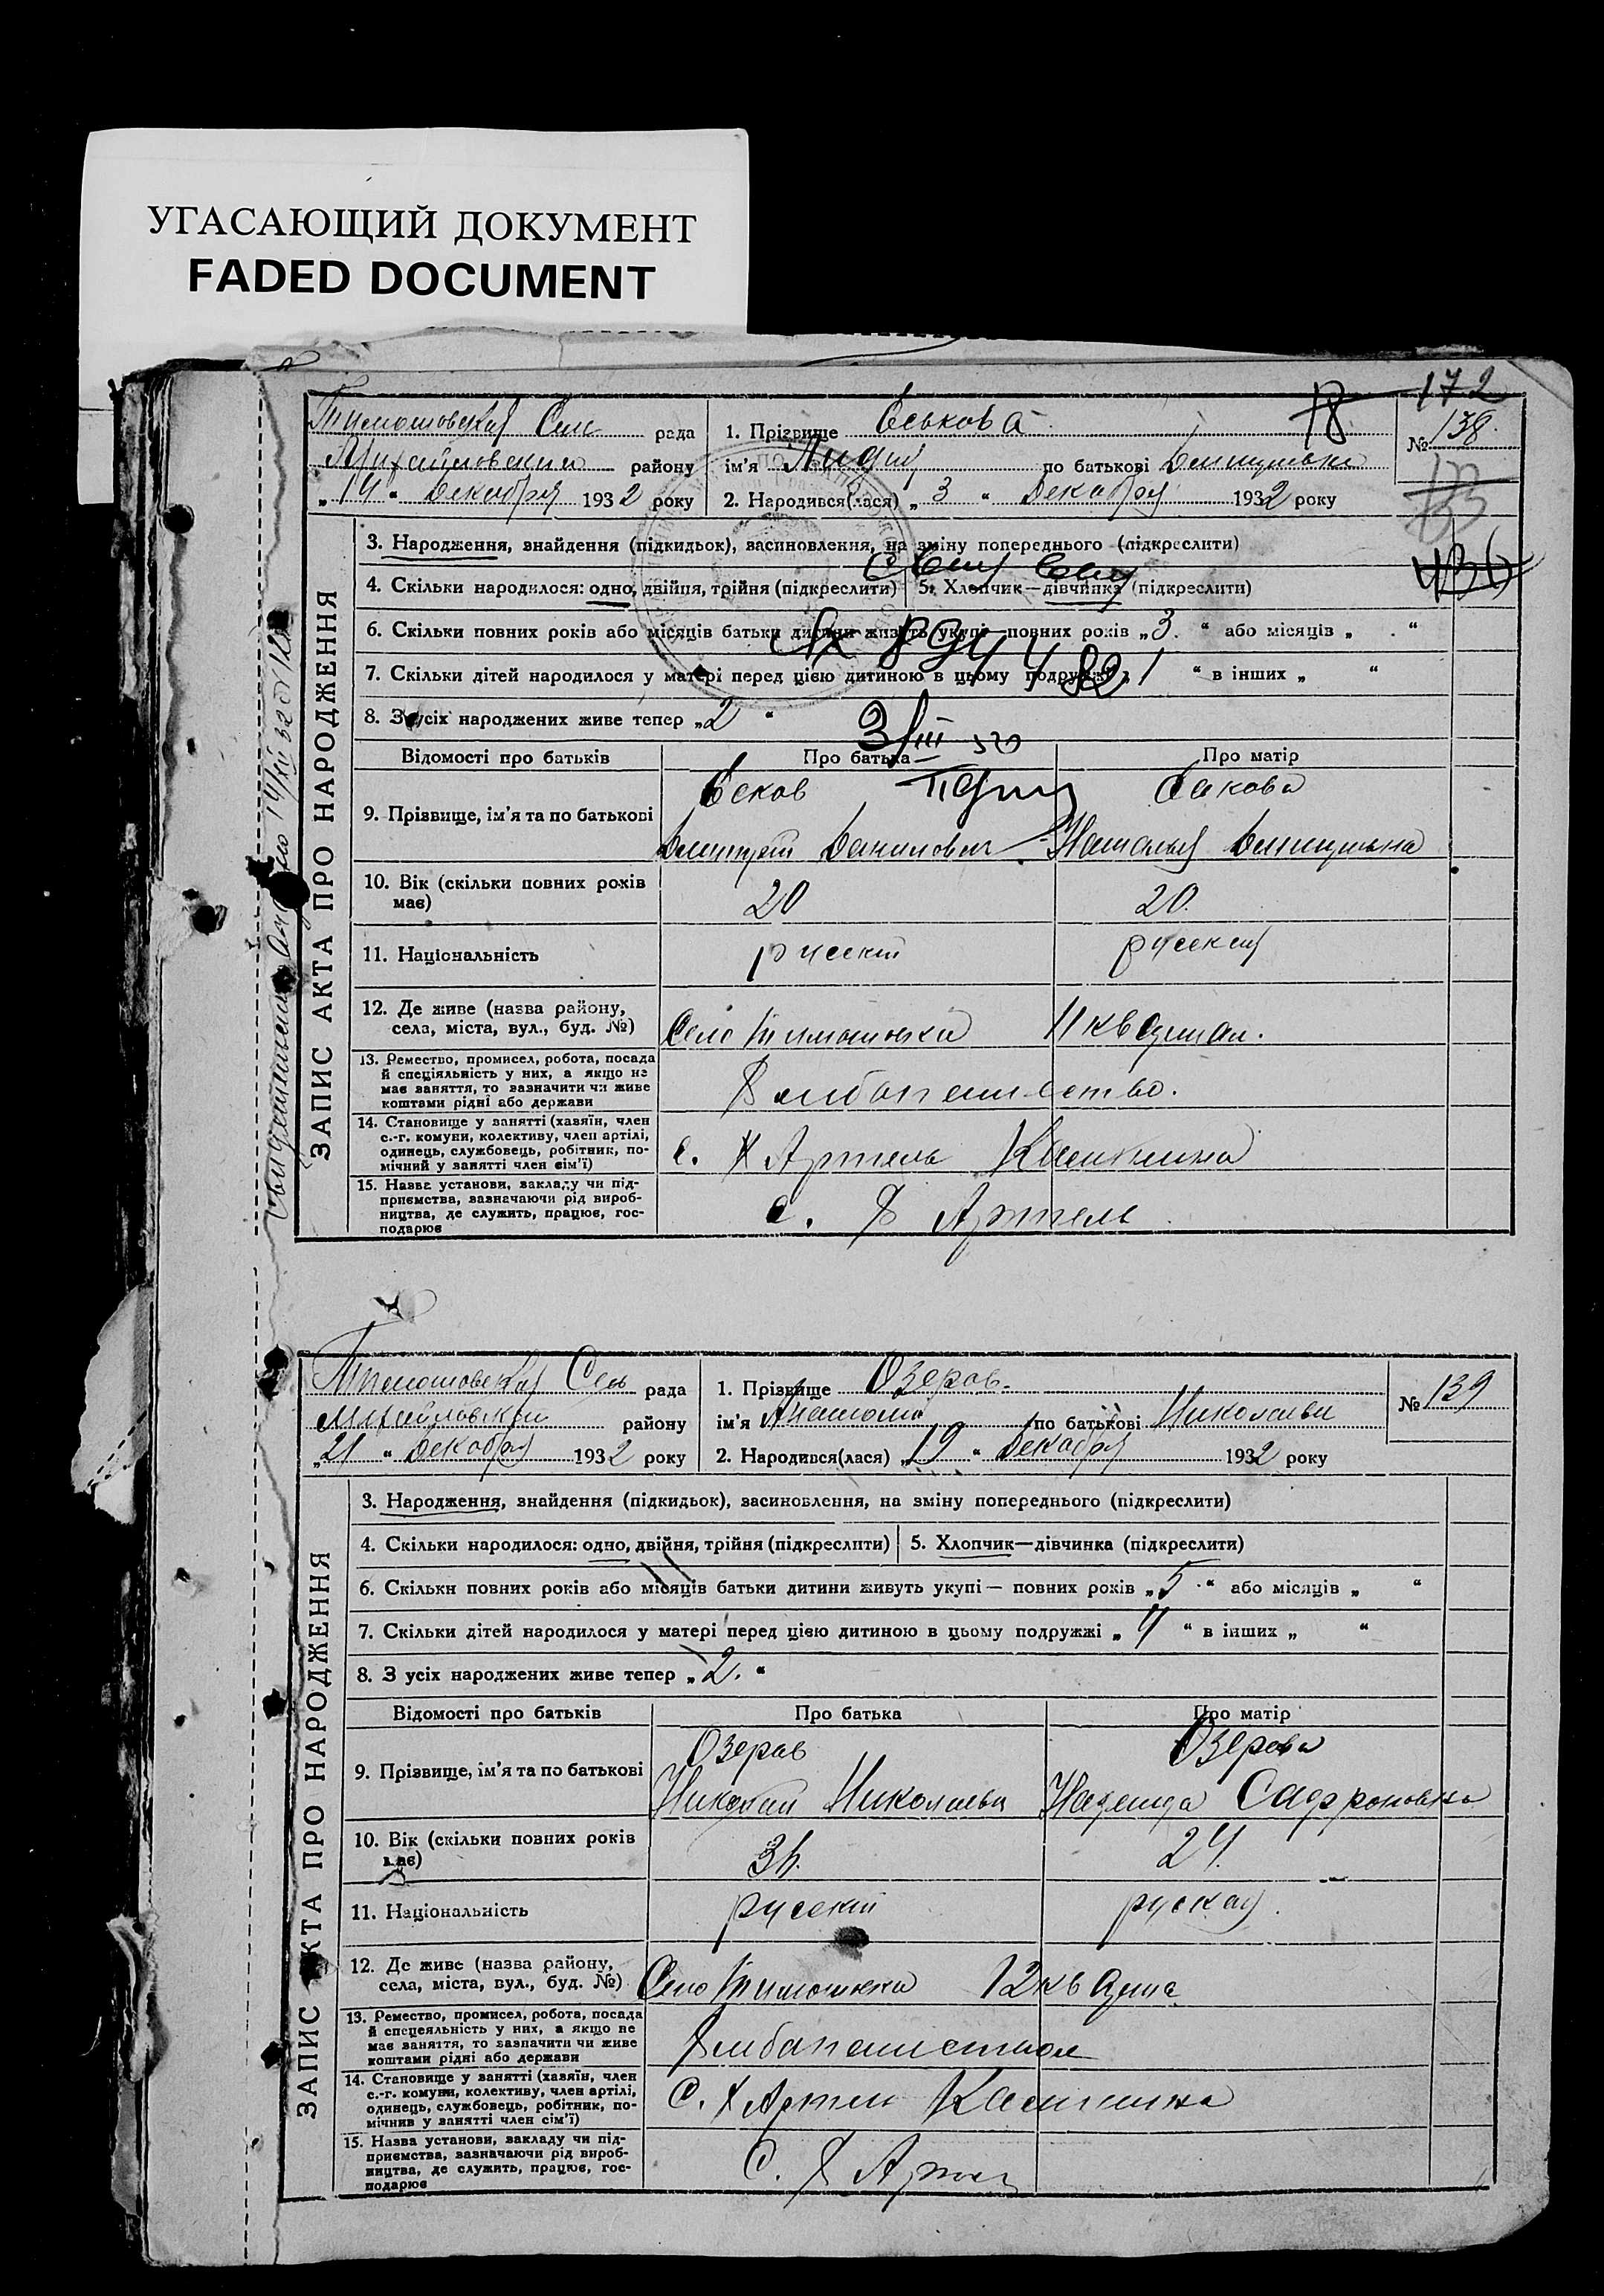 УГАСАЮЩИЙ ДОКУМЕНТ
FADED DOCUMENT
172
18
Тимошовская Сель рада
Михайловский району
„14“ Декабря 1932 року
1. Прізвище Еськова
ім'я Лидия по батькові
2. Народився(лася) „3“ Декабря 1932 року
№ 138
436
ЗАПИС АКТА ПРО НАРОДЖЕННЯ
3. Народження, знайдення (підкидьок), засиновлення, на зміну попереднього (підкреслити)
4. Скільки народилося: одно, двійня, трійня (підкреслити) 5. Хлопчик—дівчинка (підкреслити)
6. Скільки повних років або місяців батьки дитини живуть укупі—повних років „3.“ або місяців „ “
7. Скільки дітей народилося у матері перед цією дитиною в цьому подружжі „1“ в інших „ “
8. З усіх народжених живе тепер „2“
Відомості про батьків Про батька Про матір
9. Прізвище, ім'я та по батькові
Еськов Еськова
Дмитрий Данилович Наталья
10. Вік (скільки повних років має) 20 20.
11. Національність русский русская
12. Де живе (назва району, села, міста, вул., буд. №) Село Тимошовка 11 квартал.
13. Ремество, промисел, робота, посада
й спеціяльність у них, а якщо не
має заняття, то зазначити чи живе
коштами рідні або держави
Хлебопашество.
14. Становище у занятті (хазяїн, член
с.-г. комуни, колективу, член артілі,
одинець, службовець, робітник, по-
мічний у занятті член сім'ї)
с. Х Артель Калинина
15. Назва установи, закладу чи під-
приємства, зазначаючи рід вироб-
ництва, де служить, працює, гос-
подарює
с. Х Артель
Тимошовская Сель рада
Михайловский району
„21“ Декабря 1932 року
1. Прізвище Озеров.
ім'я Анатолий по батькові Николаеви
2. Народився(лася) „19“ Декабря 1932 року
№ 139
ЗАПИС АКТА ПРО НАРОДЖЕННЯ
3. Народження, знайдення (підкидьок), засиновлення, на зміну попереднього (підкреслити)
4. Скільки народилося: одно, двійня, трійня (підкреслити) 5. Хлопчик—дівчинка (підкреслити)
6. Скільки повних років або місяців батьки дитини живуть укупі — повних років „5.“ або місяців „ “
7. Скільки дітей народилося у матері перед цією дитиною в цьому подружжі „ “ в інших „ “
8. З усіх народжених живе тепер „2.“
Відомості про батьків Про батька Про матір
9. Прізвище, ім'я та по батькові
Озеров Озерова
Николай Николаеви Надежда Садроновна
10. Вік (скільки повних років має) 24.
11. Національність русский руская.
12. Де живе (назва району, села, міста, вул., буд. №) Село Тимошовка 12
13. Ремество, промисел, робота, посада
й спецеяльність у них, а якщо не
має заняття, то зазначити чи живе
коштами рідні або держави
14. Становище у занятті (хазяїн, член
с.-г. комуни, колективу, член артілі,
одинець, службовець, робітник, по-
мічнив у занятті член сім'ї)
с. Х Артель Калинина
15. Назва установи, закладу чи під-
приємства, зазначаючи рід вироб-
ництва, де служить, працює, гос-
подарює
С. Х